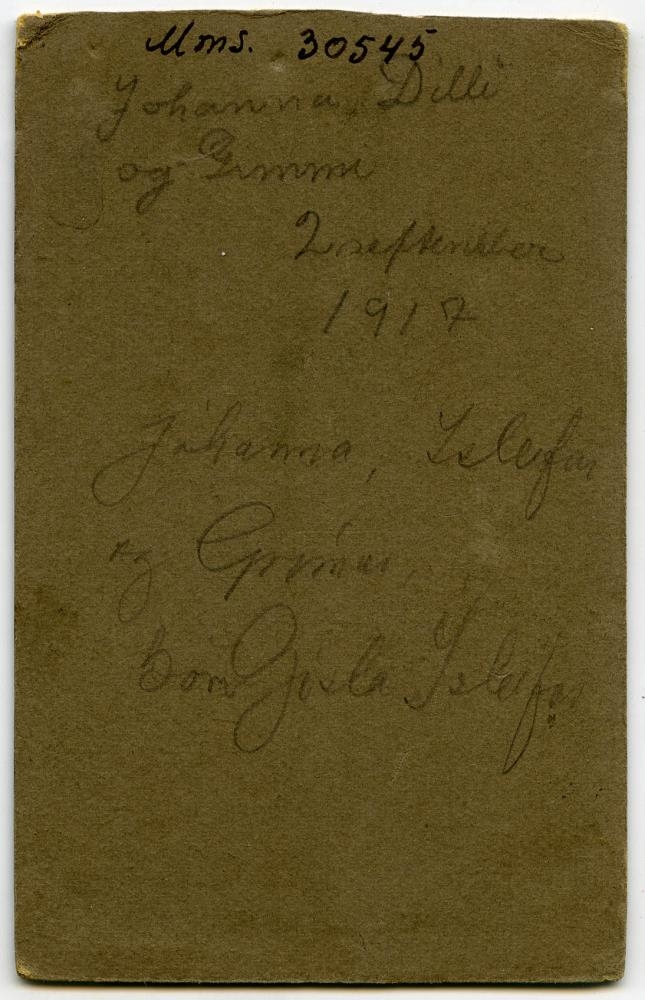 Mms. 30545
Johanna, Dilli
og Gimmi
2 september
1917
Jóhanna, Isleifur
og Grímur,
börn Gísla Isleifss